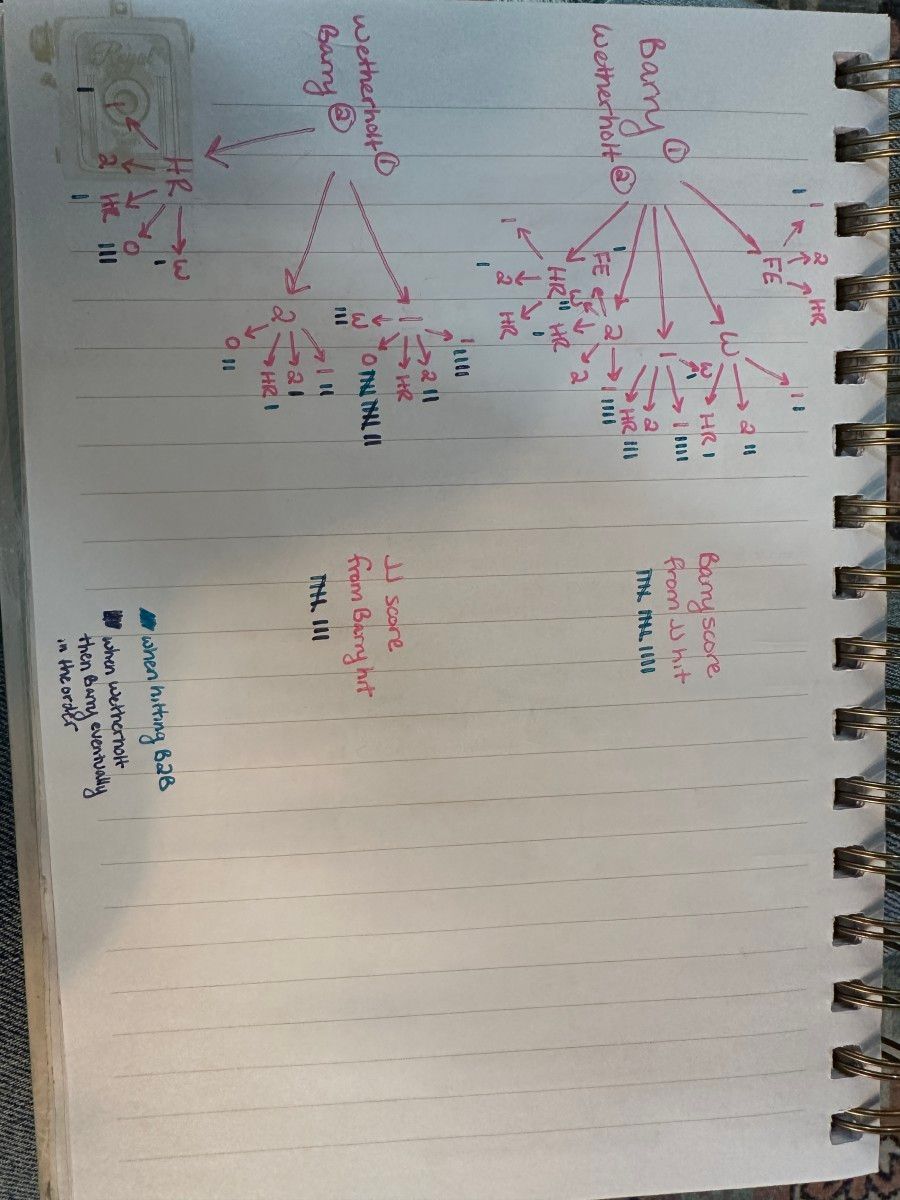 Barry ①
Wetherholt ②
FE
1 |
2
HR
W
1 |
2 ||
HR |
W |
1
1 |||||
2
HR |||
2
FE |
W ||
HR
2
1 ||||
HR
1
2 |
HR |
Barry score
from JJ hit
𝍸 𝍸 ||||
Wetherholt ①
Barry ②
1
1 |||||
2 ||
HR
O 𝍸 𝍸 ||
W |||
2
1 ||
2 |
HR |
O ||
HR
1 |
2 |
HR |||
O
W |
JJ score
from Barry hit
𝍸 |||
when hitting B2B
when wetherholt
then Barry eventually
in the order
Royal